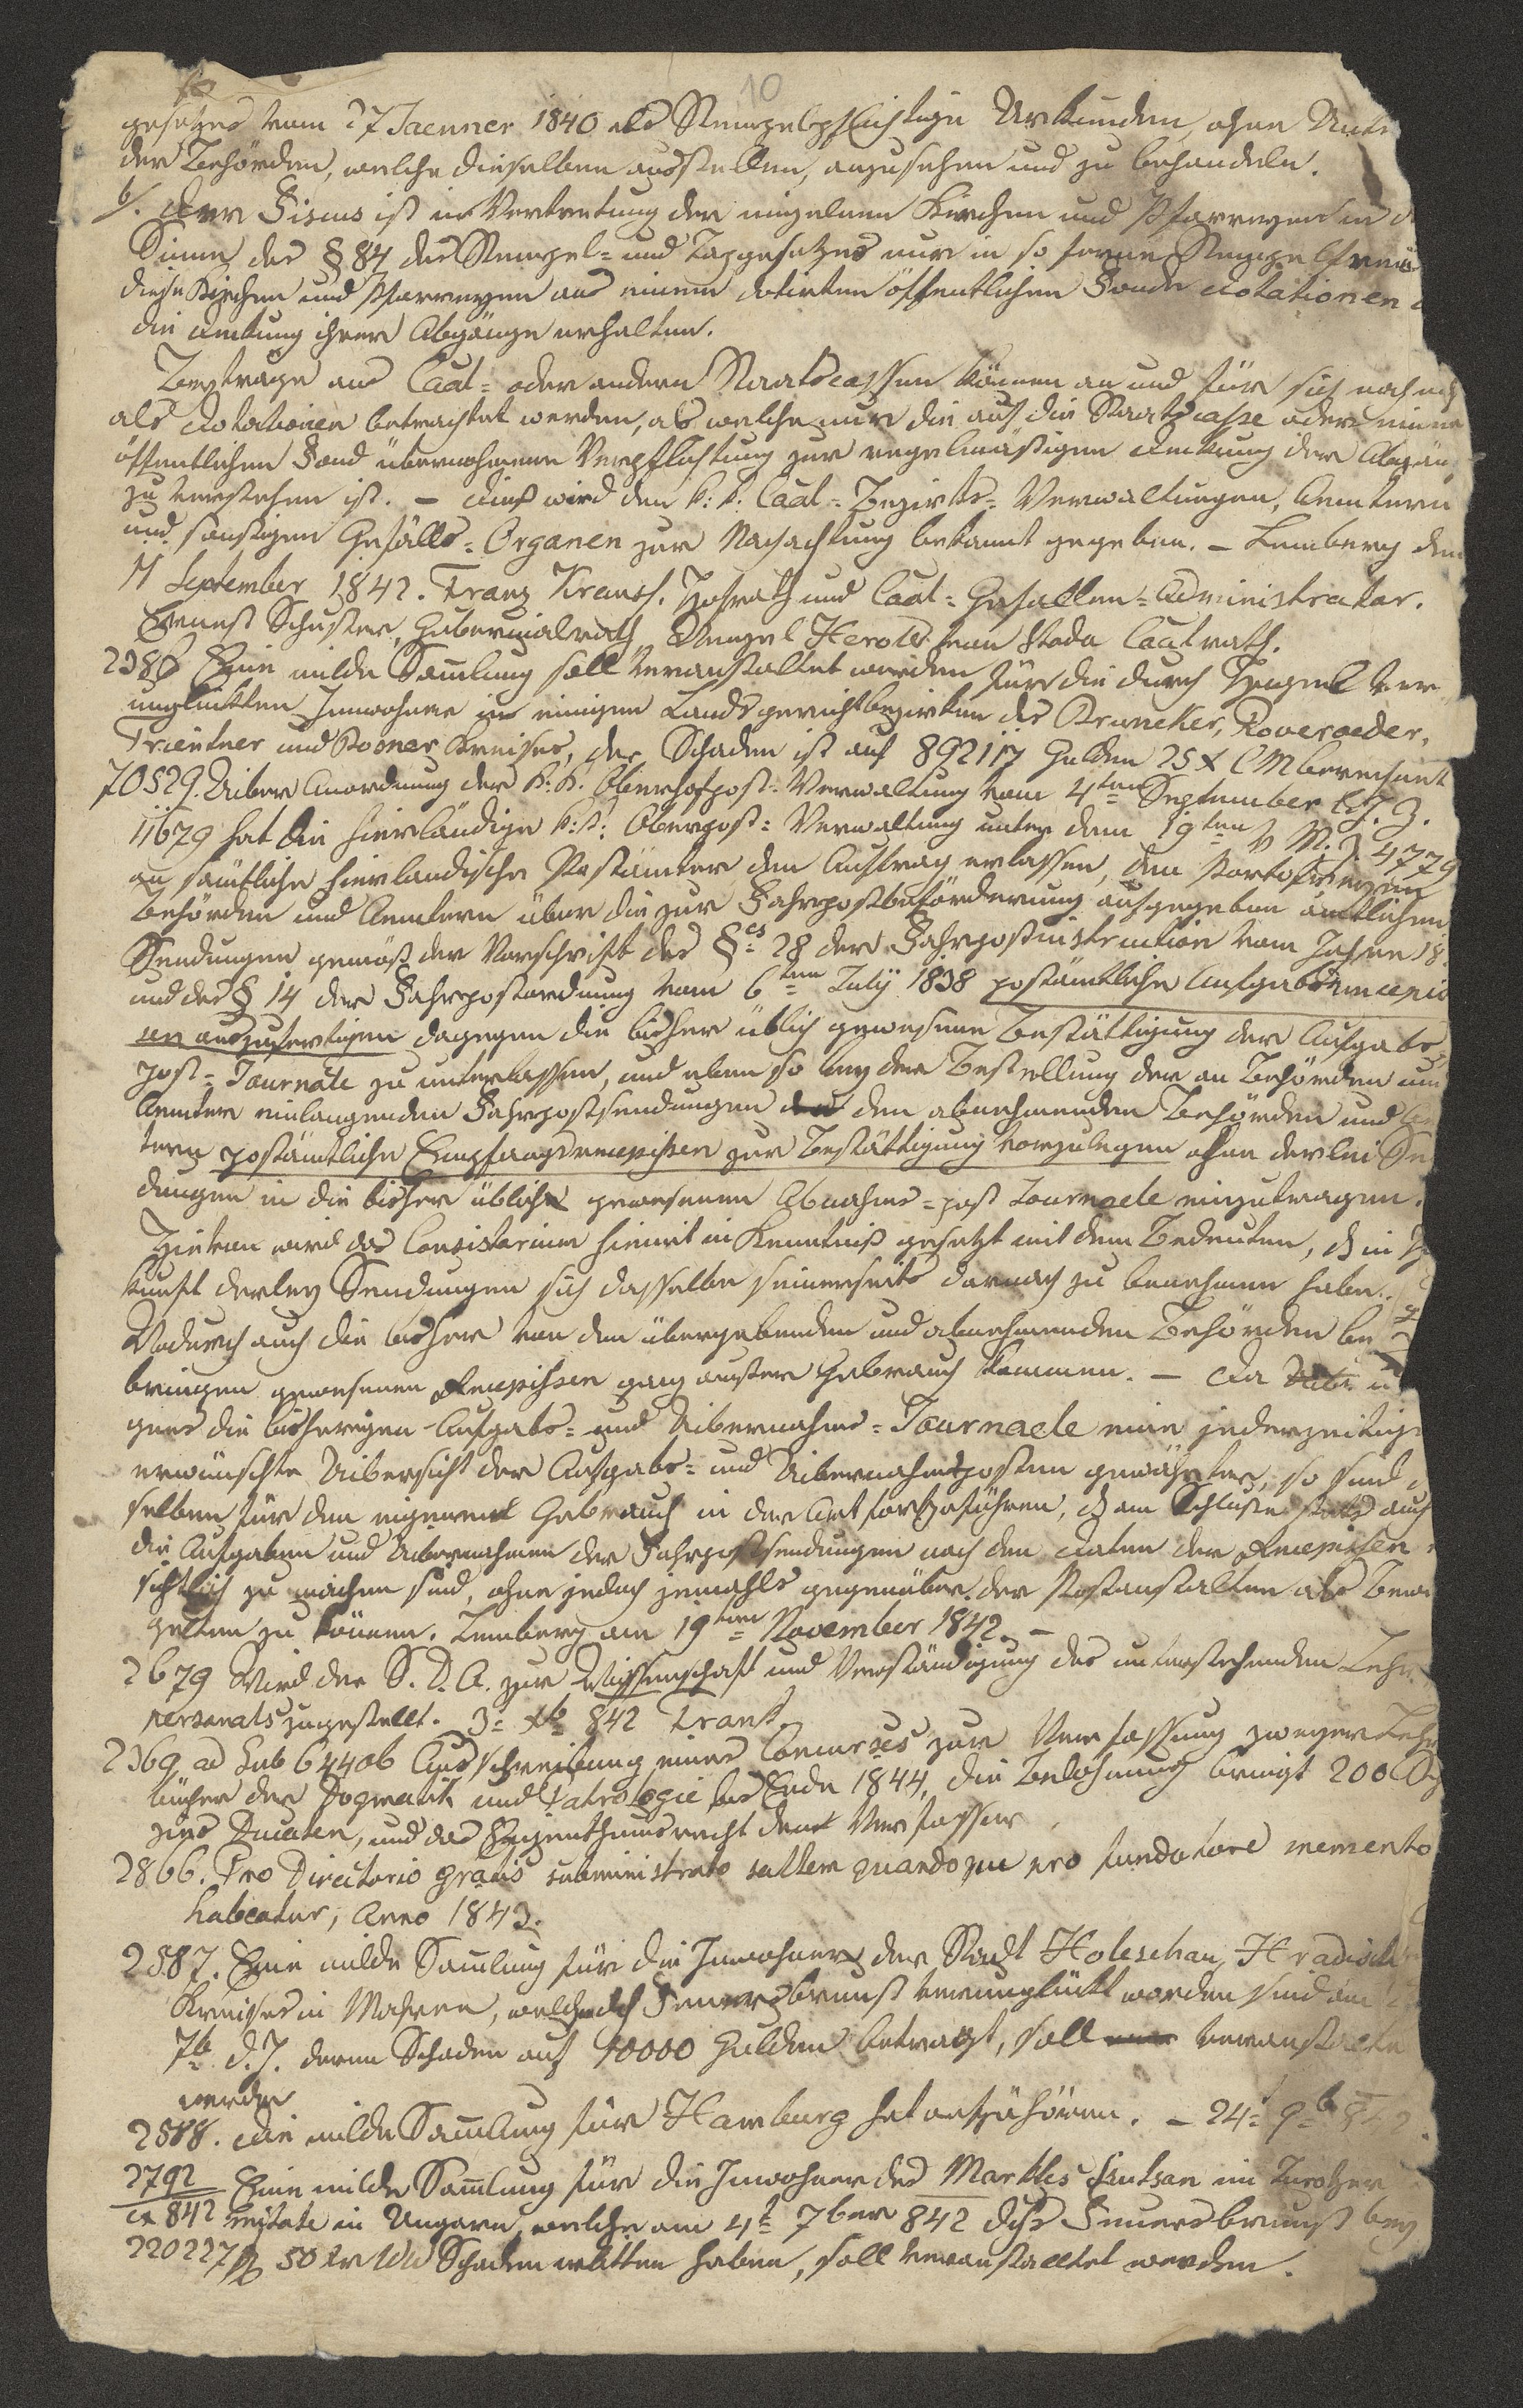 10
gesetzes vom 27 Jaenner 1840 als Stempelpflichtige Urkunden, ohne Unte
der Behörden, welche dieselben ausstellen, anzusehen und zu behandeln.
b/. Der Fiscus ist in Vertretung der einzelnen Kirchen und Pfarreyen in d
Sinne des § 84 des Stempel= und Taxgesetzes nur in so ferne Stempelfrei
diese Kirchen und Pfarreyen aus einem dotirten öffentlichen Fonde Dotationen
die Deckung ihrer Abgänge erhalten.
Beyträge aus Caal= oder andern Staatscassen können an und für sich noch
als Dotationen betrachtet werden, als welche nur die auf die Staatscasse oder einen
öffentlichen Fond übernohmene Verpflichtung zur regelmäßigen Deckung der Abgän
zu verstehen ist. – Dieß wird den k: k: Caal= Bezirks= Verwaltungen, Aemtern
und sonstigen Gefälls= Organen zur Nachachtung bekannt gegeben. – Lemberg den
11 September 1842. Franz Krauss, Hofrath und Caal= Gefällen= Administrator.
Ernest Schuster, Gubernialrath, Wenzel Herold von Stoda Caalrath.
2386 Eine milde Sam̄lung soll veranstaltet werden für die durch Hagel ver
unglückten Inwohner in einigen Landsgerichtsbezirken des Bruneker, Roveroeder,
Trientner und Bozner Kreises, der Schaden ist auf 892117 Gulden 25 x CM berechnet
70529. Uiber Anordnung der k: k: Obersthofpost= Verwaltung vom 4ten September l. J. Z.
11679 hat die hierländige k: k: Oberpost= Verwaltung unter dem 19ten v M. Z. 4779
an sämtliche hierländische Postämter den Auftrag erlassen, den Portofreyen
Behörden und Aemtern über die zur Fahrpostbeförderung aufgegeben ämtlichen
Sendungen gemäß der Vorschrift des §es 28 der Fahrpostinstruction vom Jahre 18
und des § 14 der Fahrpostordnung vom 6ten July 1838 postämtliche Aufgabsrecepis
sen auszufertigen dagegen die bisher üblich gewesene Bestättigung der Aufgabs
post= Journäle zu unterlassen, und eben so bey der Bestellung der an Behörden und
Aemter einlangenden Fahrpostsendungen den abnehmenden Behörden und Ae
tern postämtliche Empfangsrecepissen zur Bestättigung vorzulegen ohne derlei Se
dungen in die bisher üblich gewesenen Abnahms= post Journaele einzutragen.
Hievon wird das Consistorium hiemit in Kenntniß gesetzt mit dem Bedeuten, d in
kunft derley Sendungen sich dasselbe seinerseits darnach zu benehmen habe.
Wodurch auch die bisher von den übergebenden und abnehmenden Behörden be
bringen gewesenen Recepissen ganz ausser Gebrauch kommen. – Da
gens die bisherigen Aufgabs= und Uibernahms= Journaele eine jederzeitige
erwünschte Uibersicht der Aufgabs= und Uibernahmsposten gewährten, so sind
selben für den eigenen Gebrauch in der Art fortzuführen, d am Schluße stets auch
die Aufgaben und Uibernahmen der Fahrpostsendungen nach den Daten der Recepissen
sichtlich zu machen sind, ohne jedoch jemahls gegenüber der Postanstalten als Bewe
gelten zu können. Lemberg am 19ten November 1842. –
2679 Wird der S. D. A. zur Wissenschaft und Verständigung des unterstehenden Lehr
personals zugestellt. 3= Xb 842
2369 ad Gub 64406 Ausschreibung eines Concurses zur Verfassung zweyer Lehr
bücher der Dogmatik und Patrologie bis Ende 1844, die Belohnung bringt 200
zins Ducaten, und das Eigenthumsrecht dem Verfasser
2866. Pro Directorio gratis subministrato saltem quandoque pro fundatore memento
habeatur, Anno 1843.
2587. Eine milde Sam̄lung für die Inwohner der Stadt Holeschau, Hradisch
Kreises in Mähren, welche dch Feuersbrunst verunglückt worden sind am
7b d. J. deren Schaden auf 40000 Gulden betragt, soll veranstaltet
werden
2588. Die milde Sam̄lung für Hamburg hat aufzuhören. – 24= 9b 842.
2792 Eine milde Sam̄lung für die Inwohner des Marktes im Turotzer
ex 842 mitate in Ungarn, welche am 4t 7ber 842 dchs Feuersbrunst bey
220227 f 50 xr WW Schaden erlitten haben, soll veranstalltet werden.